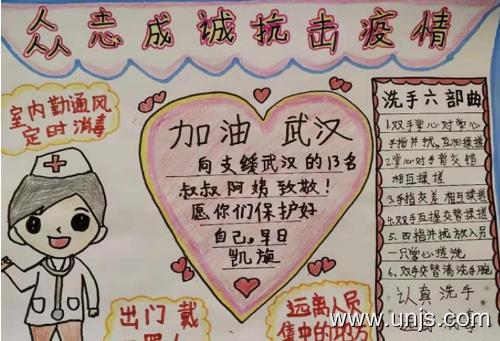 众志成诚抗击疫情
室内勤通风
定时消毒
加油 武汉
向支缓武汉的13名
叔叔阿姨致敬!
愿你们保护好
自己。早日
凯旋
洗手六部曲
1.双手掌心对掌心
手指并拢,互相揉搓
2.掌心对手背交错
相互揉搓
3.手指交叉 相互揉搓
4.双手互握交替揉搓
5.四指并拢放入另
一只掌心搓洗
6.双手交替清洗手腕
认真洗手
出门 戴
远离人员
集中的地方
www.unjs.com